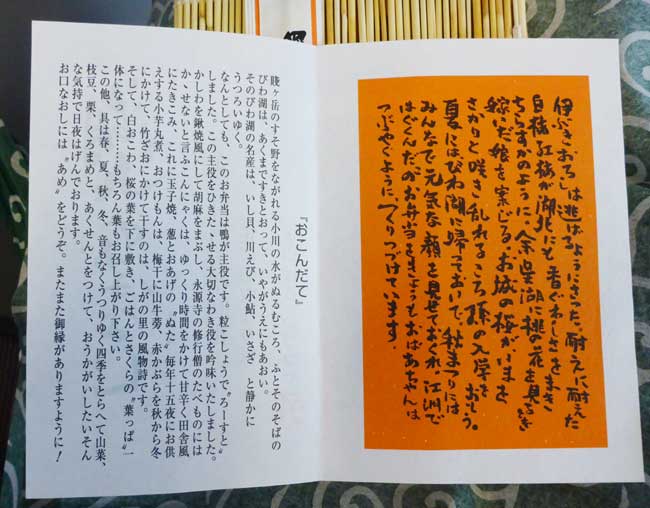 伊ぶきおろしは逃げるようにさった。耐えに耐えた
白梅紅梅が湖北にも香ぐわしさをまき
ちらすかのように、余呉湖に桃の花を見るとき
嫁いだ娘を案じる。お城の桜がいまを
さかりと咲き乱れるころ、孫の入学をおもう。
夏にはびわ湖に帰っておいで、秋まつりには
みんなで元気な顔を見せておくれ。江洲で
はぐくんだこのお弁当をきょうもおばあちゃんは
つぶやくようにつくりつづけています。
『おこんだて』
賤ヶ岳のすそ野をながれる小川の水がぬるむころ、ふとそのそばの
びわ湖は、あくまですきとおって、いやがうえにもあおい。
そのびわ湖の名産は、いし貝、川えび、小鮎、いさざ と静かに
うつろいゆく。
なんとしても、このお弁当は鴨が主役です。粒こしょうで〝ろーすと〟
しました。この主役をひきたたせる大切なわき役を吟味いたしました。
かしわを鍬焼風にして胡麻をまぶし、永源寺の修行僧のたべものには
かゝせないと言ふこんにゃくは、ゆっくり時間をかけて甘辛く田舎風
にたきこみ、これに玉子焼、葱とおあげの〝ぬた〟毎年十五夜にお供
えする小芋丸煮、おつけもんは、梅干に山牛蒡、赤かぶらを秋から冬
にかけて、竹ざおにかけて干すのは、しがの里の風物詩です。
そして、白おこわ、桜の葉を下に敷き、ごはんとさくらの〝葉っぱ〟一
体になって………もちろん葉もお召し上がり下さい。
この他、具は春、夏、秋、冬、音もなくうつりゆく四季をとらへて山菜、
枝豆、栗、くろまめと、あくせんとをつけて、おうかがいしたいそん
な気持で日夜はげんでおります。
お口なおしには〝あめ〟をどうぞ。またまた御縁がありますように！